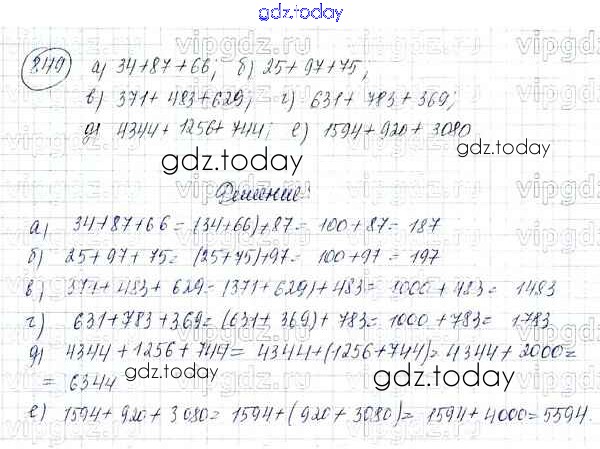 gdz.today
249 а) 34+87+66; б) 25+97+75;
в) 371+483+629; г) 631+783+369;
д) 4344+1256+744; е) 1594+920+3080
gdz.today
Решение:
а) 34+87+66=(34+66)+87=100+87=187
б) 25+97+75=(25+75)+97=100+97=197
в) 371+483+629=(371+629)+483=1000+483=1483
г) 631+783+369=(631+369)+783=1000+783=1783
д) 4344+1256+744=4344+(1256+744)=4344+2000=
=6344 gdz.today gdz.today
е) 1594+920+3080=1594+(920+3080)=1594+4000=5594.